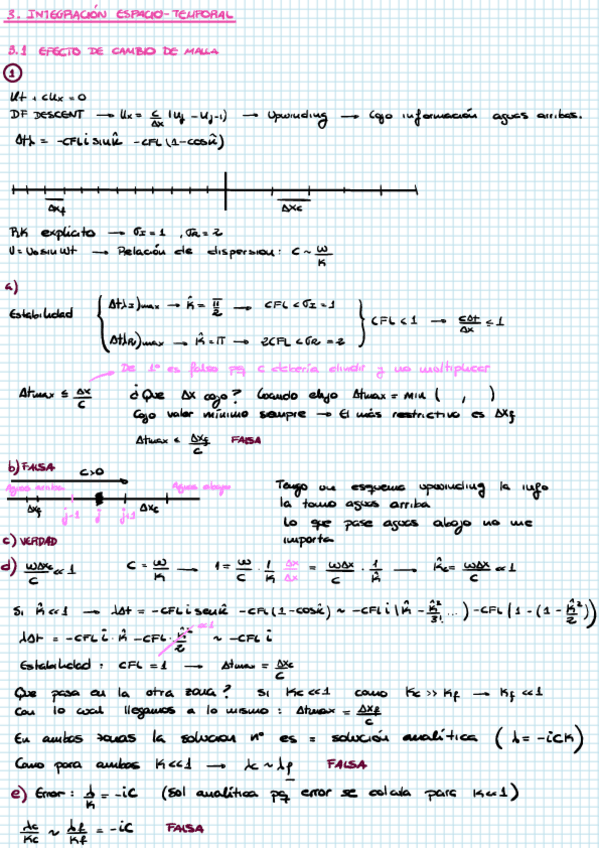 3. INTEGRACIÓN ESPACIO-TEMPORAL
3.1 EFECTO DE CAMBIO DE MALLA
1
Ut + cUx = 0
DF DESCENT → Ux = c/Δx (Uj - Uj-1) → Upwinding → Cojo información aguas arribas.
Δtλ = -CFL i sin k̂ - CFL (1-cos k̂)
Δxf Δxc
RK explícito → σI = 1, σR = 2
U = U0 sin wt → Relación de dispersion: c ~ w/k
a)
Estabilidad { ΔtλI)max → k̂ = π/2 → CFL < σI = 1
ΔtλR)max → k̂ = π → 2CFL < σR = 2 } CFL < 1 → cΔt/Δx ≤ 1
De 1º es falso pq c debería dividir y no multiplicar
Δtmax ≤ Δx/c ¿Que Δx cojo? Cuando elijo Δtmax = min ( , )
Cojo valor mínimo siempre → El más restrictivo es Δxf
Δtmax < Δxf/c FALSA
b) FALSA c>0
Aguas arriba Aguas abajo
Δxf j-1 j j+1 Δxc
Tengo un esquema upwinding la info
la tomo aguas arriba
Lo que pase aguas abajo no me
importa
c) VERDAD
d) wΔxc/c << 1 c = w/k → 1 = w/c · 1/k Δx/Δx = wΔx/c · 1/k̂ → k̂c = wΔx/c << 1
Si k̂ << 1 → λΔt = -CFL i sen k̂ - CFL (1-cos k̂) ~ -CFL i (k̂ - k̂³/3! ...) - CFL (1 - (1 - k̂²/2))
λΔt = -CFL i · k̂ - CFL · k̂²/2 <<1 ~ -CFL i
Estabilidad: CFL = 1 → Δtmax = Δxc/c
Que pasa en la otra zona? Si Kc << 1 como Kc >> Kf → Kf << 1
Con lo cual llegamos a lo mismo: Δtmax = Δxf/c
En ambas zonas la solucion nº es = solución analítica (λ = -iCK)
Como para ambos K << 1 → λc ~ λf FALSA
e) Error: λ/K = -iC (Sol analítica pq error se calcula para K << 1)
λc/Kc ~ λf/Kf = -iC FALSA